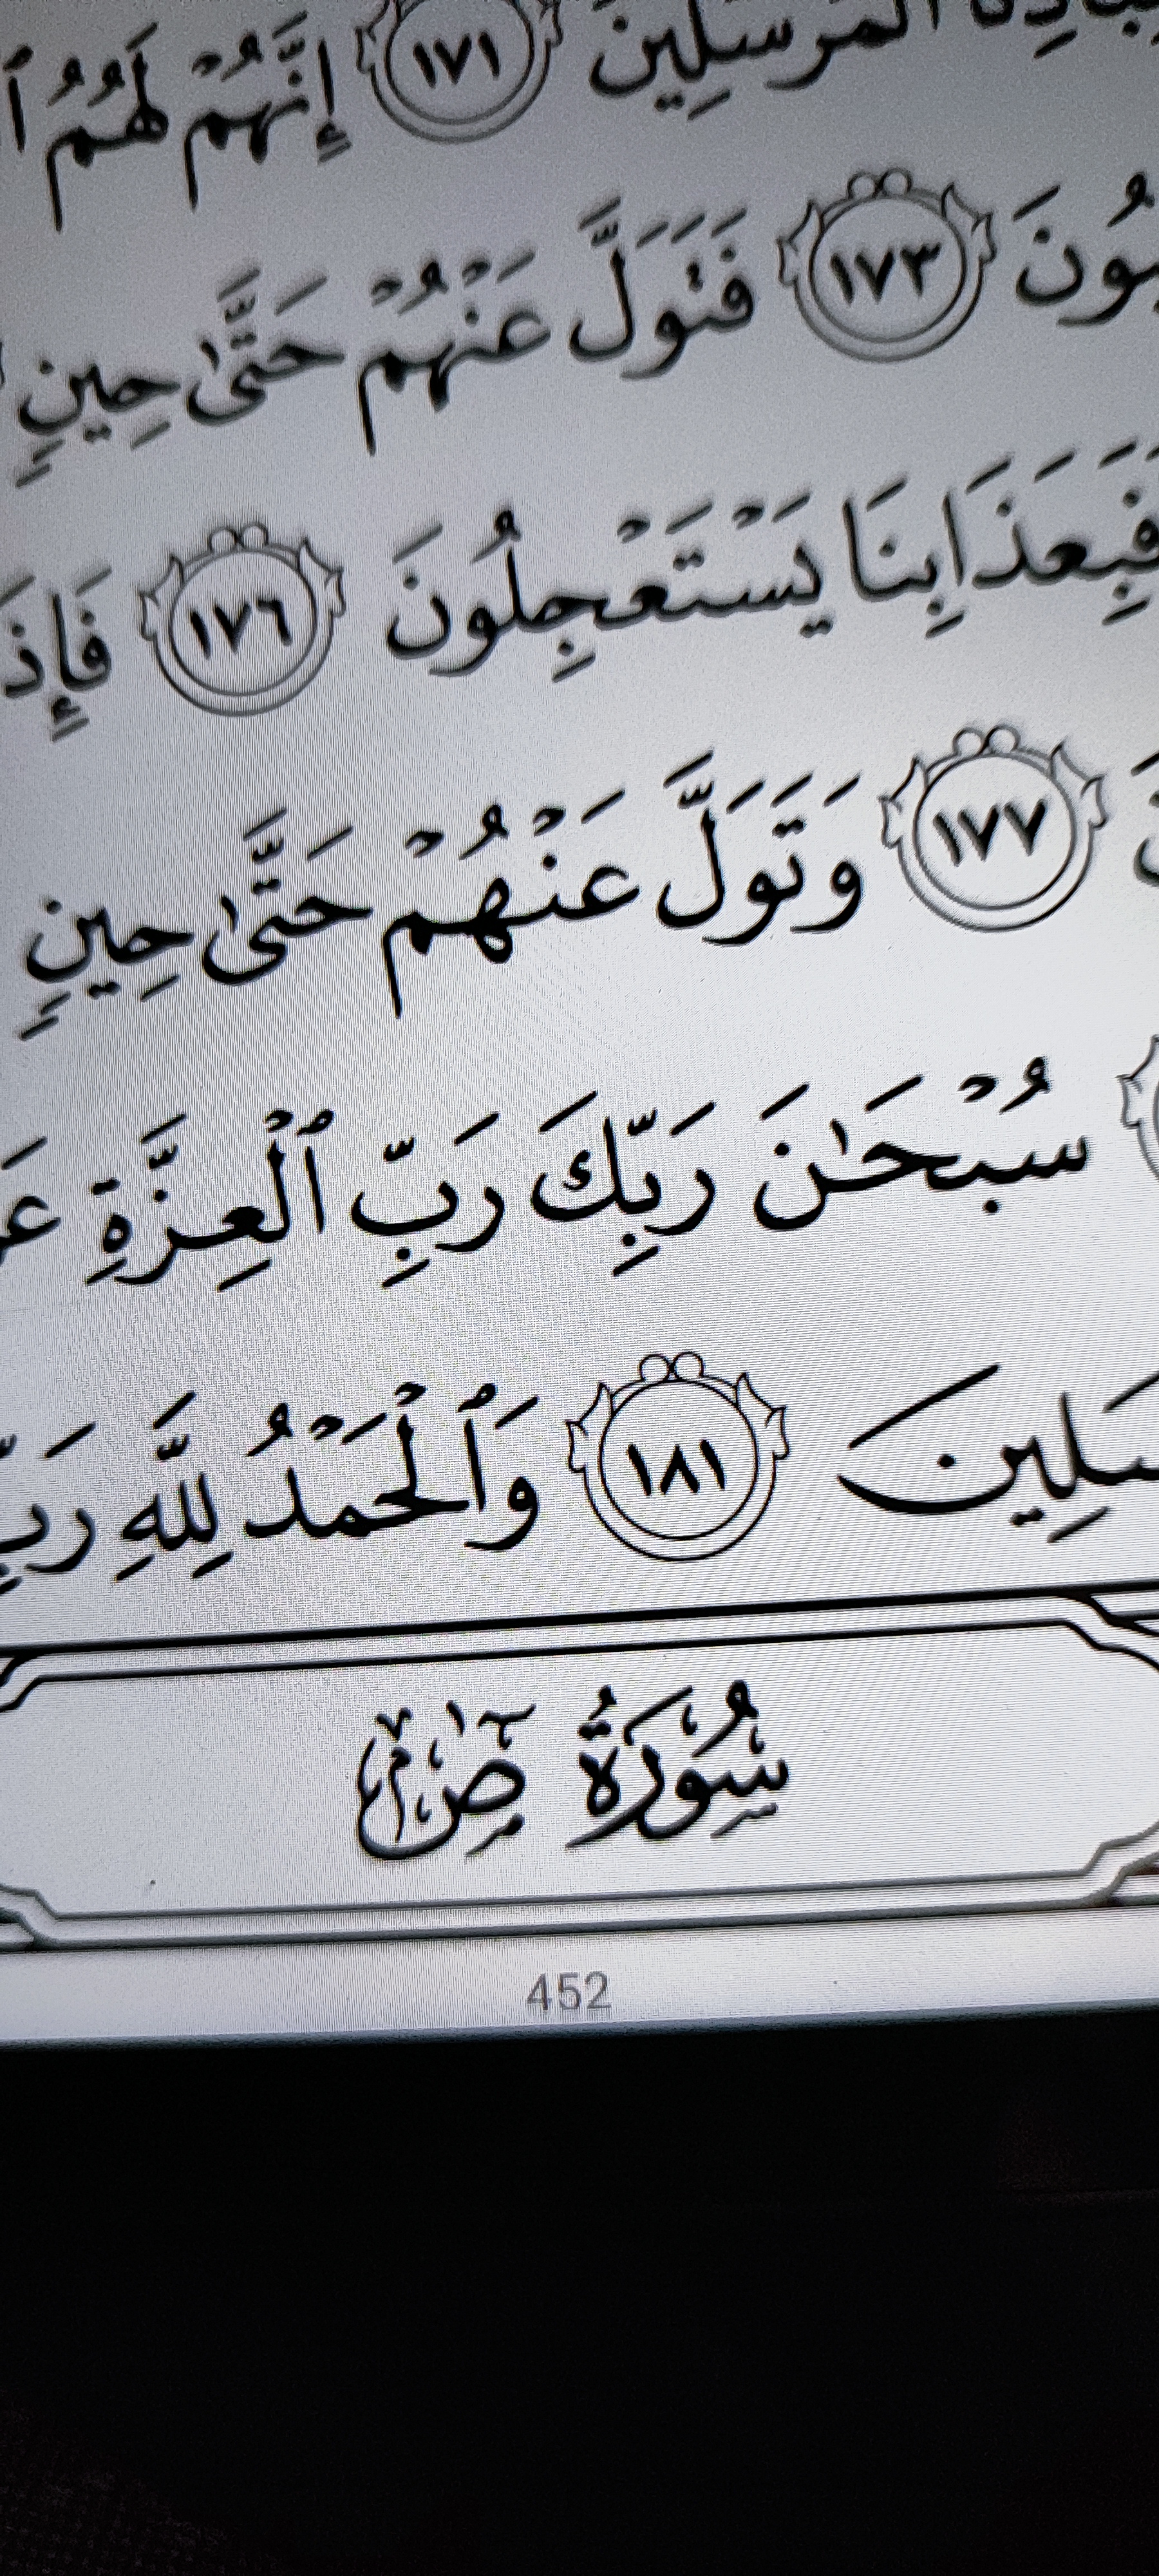 ٱلْمُرْسَلِينَ ١٧١ إِنَّهُمْ لَهُمُ
١٧٣ فَتَوَلَّ عَنْهُمْ حَتَّىٰ حِينٍ
فَبِعَذَابِنَا يَسْتَعْجِلُونَ ١٧٦
١٧٧ وَتَوَلَّ عَنْهُمْ حَتَّىٰ حِينٍ
سُبْحَٰنَ رَبِّكَ رَبِّ ٱلْعِزَّةِ
١٨١ وَٱلْحَمْدُ لِلَّهِ
سُورَةُ صٓ
452